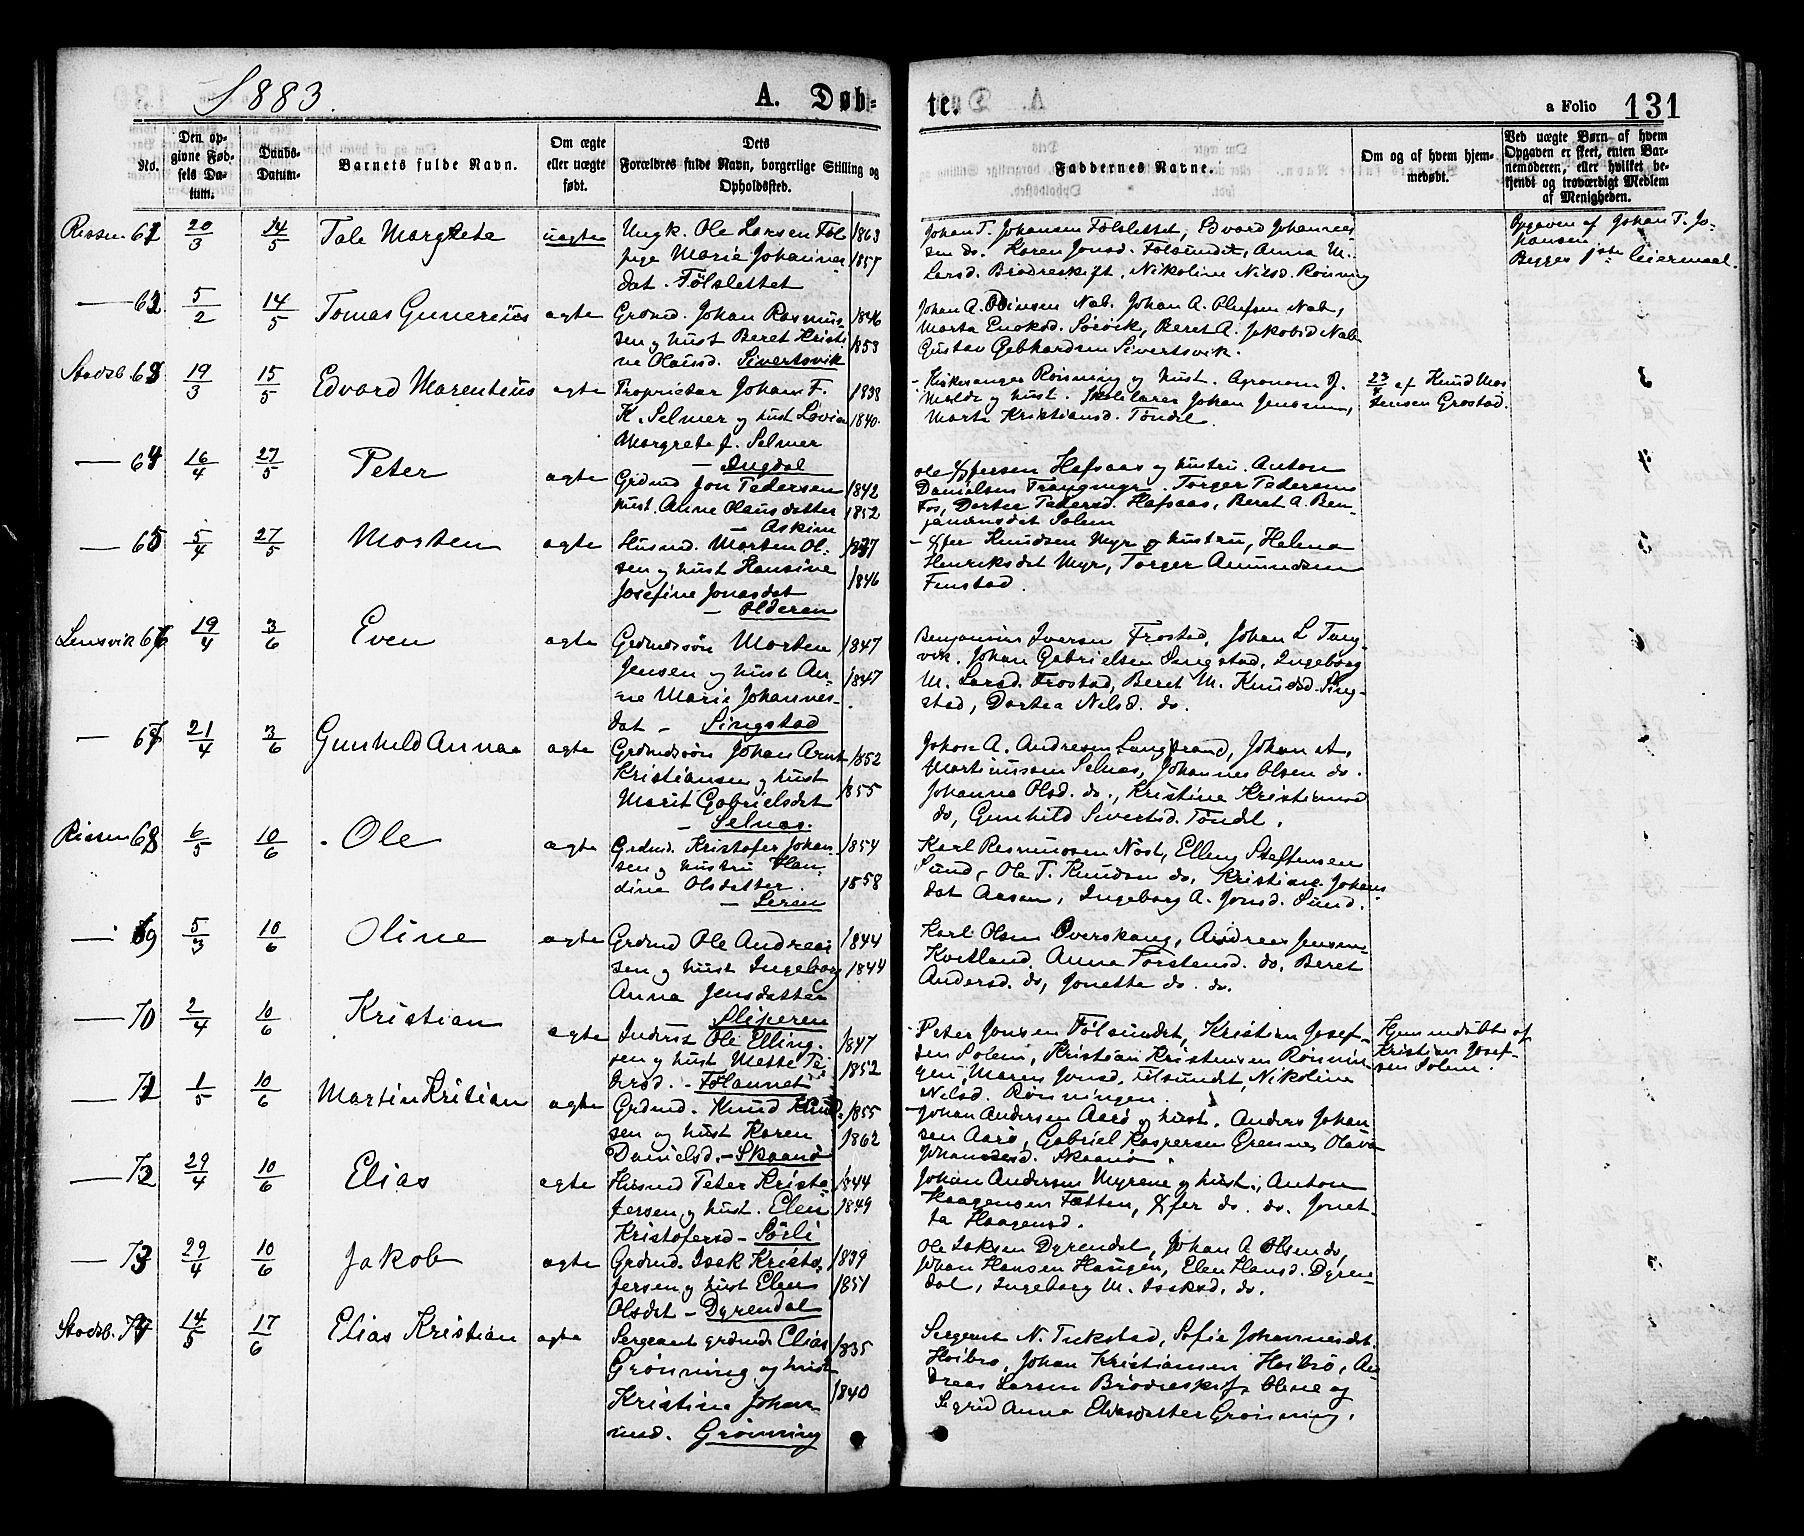 1883.
A. Døb-
te.
a Folio 131
No.
Den op-
givne Fød-
sels Da-
tum.
Daabs-
Datum.
Barnets fulde Navn.
Om ægte
eller uægte
født.
Dets
Forældres fulde Navn, borgerlige Stilling og
Opholdssted.
Faddernes Navne.
Om og af hvem hjem-
medøbt.
Ved uægte Børn af hvem
Opgaven er skeet, enten Bar-
nemoderen, eller hvilket be-
kjendt og troværdigt Medlem
af Menigheden.
Rissen 61 20/3 14/5 Tale Margrete uagte
Ungk. Ole Larsen Føl 1863
Pige Marie Johannes 1857
dat. Følslettet
Johan T. Johansen Følslettet, Edvard Johannes
sen do. Karen Jonsd. Følsundet, Anna M.
Larsd. Brødreskift, Nikoline Nilsd. Rønning
Opgaven af Johan T. Jo-
hansen
Begges 1ste Leiermaal.
— 62 5/2 14/5 Tomas Gunerius agte
Grdmd. Johan Rasmus- 1846
sen og hust Beret Kristi 1853
ne Olausd. Sivertsvik
Johan A. Odinsen Nab. Johan A. Olufsen Nab,
Marta Enoksd. Sørvik, Beret A. Jakobsd Nab
Gustav Gebhardsen Sivertsvik.
Stadsb. 63 19/3 15/5 Edvard Marentius agte
Proprietar Johan F. 1838
K. Selmer og hust Lovia 1840
Margrete f. Selmer
— Angdal
Kirkesanger Rønning og hust. Agronom J.
Molde og hust. Skolelærer Johan Jensen,
Marta Kristiansd. Tøndel.
23/3 af Knud Mos
tensen Grøstad.
— 64 16/4 27/5 Peter agte
Grdmd Jon Pedersen 1842
hust. Anne Olausdatter 1852
— Askim
Ole Effersen Hafsaas og hustru. Anton
Danielsen Trangmyr. Torger Pedersen
Fos, Dortea Pedersd. Hafsaas, Beret A. Ben-
jaminsdat Solem
— 65 5/4 27/5 Morten agte
Husmd. Morten Ol- 1837
sen og hust Hansine 1846
Josefine Jonasdat
— Olderen
Effer Knudsen Myr og hustru, Helena
Henriksdat Myr, Torger Amundsen
Finstad.
Lensvik 66 19/4 3/6 Even agte
Grdmdssøn Morten 1847
Jensen og hust An- 1847
ne Marie Johannes-
dat — Singstad
Benjamin Iversen Frostad, Johan L
vik. Johan Gabrielsen Singstad, Ingeborg
M. Larsd. Frostad, Beret M. Knudsd. Sing-
stad, Dortea Nilsd. do.
— 67 21/4 3/6 Gunhild Anna agte
Grdmdssøn Johan Arnt 1852
Kristiansen og hust
Marit Gabrielsdat 1855
— Selnas.
Johan A. Andresen Langstrand, Johan A.
Martinussen Selnas, Johannes Olsen do.
Johanna Olsd. do., Kristine Kristiansd
do, Gunhild Sivertsd. Tøndel.
Rissen 68 6/5 10/6 Ole agte
Grdmd. Kristofer Johan- 1854
sen og hustru Han-
dine Olsdatter. 1858
— Seren
Karl Rasmussen Nøst, Elleng Steffensen
Sund, Ole T. Knudsen do. Kristiane Johans
dat Aasen, Ingeborg A. Jonsd. Sund.
— 69 5/3 10/6 Oline agte
Grdmd Ole Andreas 1844
sen og hust Ingeborg 1844
Anna Jensdatter
Sliperen
Karl Olsen Overskaug, Andreas Jensen
Kvitland, Anna Torstensd. do, Beret
Andersd. do, Jonette do. do.
— 70 2/4 10/6 Kristian agte
Inderst Ole Elling- 1847
sen og hust Mette Pe 1852
dersd. — Følannet
Peter Jonsen Følsundet, Kristian Josef-
sen Solem, Kristian Kristensen Rønnin-
gen, Maren Jonsd. Følsundt, Nikoline
Nilsd. Rønningen.
Hjemmedøbt af
Kristian Josef-
sen Solem.
— 71 1/5 10/6 Martin Kristian agte
Grdmd. Knud Knud 1855
sen og hust Karen 1862
Danielsd. — Skaanø
Johan Andersen Aarø og hust. Anders Johan
sen Aarø, Gabriel Kaspersen Grønnes, Olava
Johannesd. Skaanø.
— 72 29/4 10/6 Elias agte
Husmd Peter Kristo 1844
fersen og hust. Elen 1849
Kristofersd — Sørli
Johan Andersen Myrene og hust., Anton
Haagensen Fætten, Effer do. do. Jonet-
ta Haagensd.
— 73 29/4 10/6 Jakob agte
Grdmd. Isak Kristo- 1839
fersen og hust Elen 1851
Olsdat — Dyrendal
Ole Isaksen Dyrendal, Johan A Olsen do,
Johan Hansen Haugen, Elen Hansd. Dyren-
dal, Ingeborg M. Isaksd. do.
Stadsb. 74 14/5 17/6 Elias Kristian agte
Sergeant grdmd Elias 1835
Grønning og hust
Kristine Johan 1840
nesd. Grønning
Sergeant N. Tukstad, Sofie Johannesdt.
Høibro, Johan Kristiansen Høibrø, An
dreas Larsen Brødreskift, Oline og
Sigrid Anna Eliasdatter Grønning.